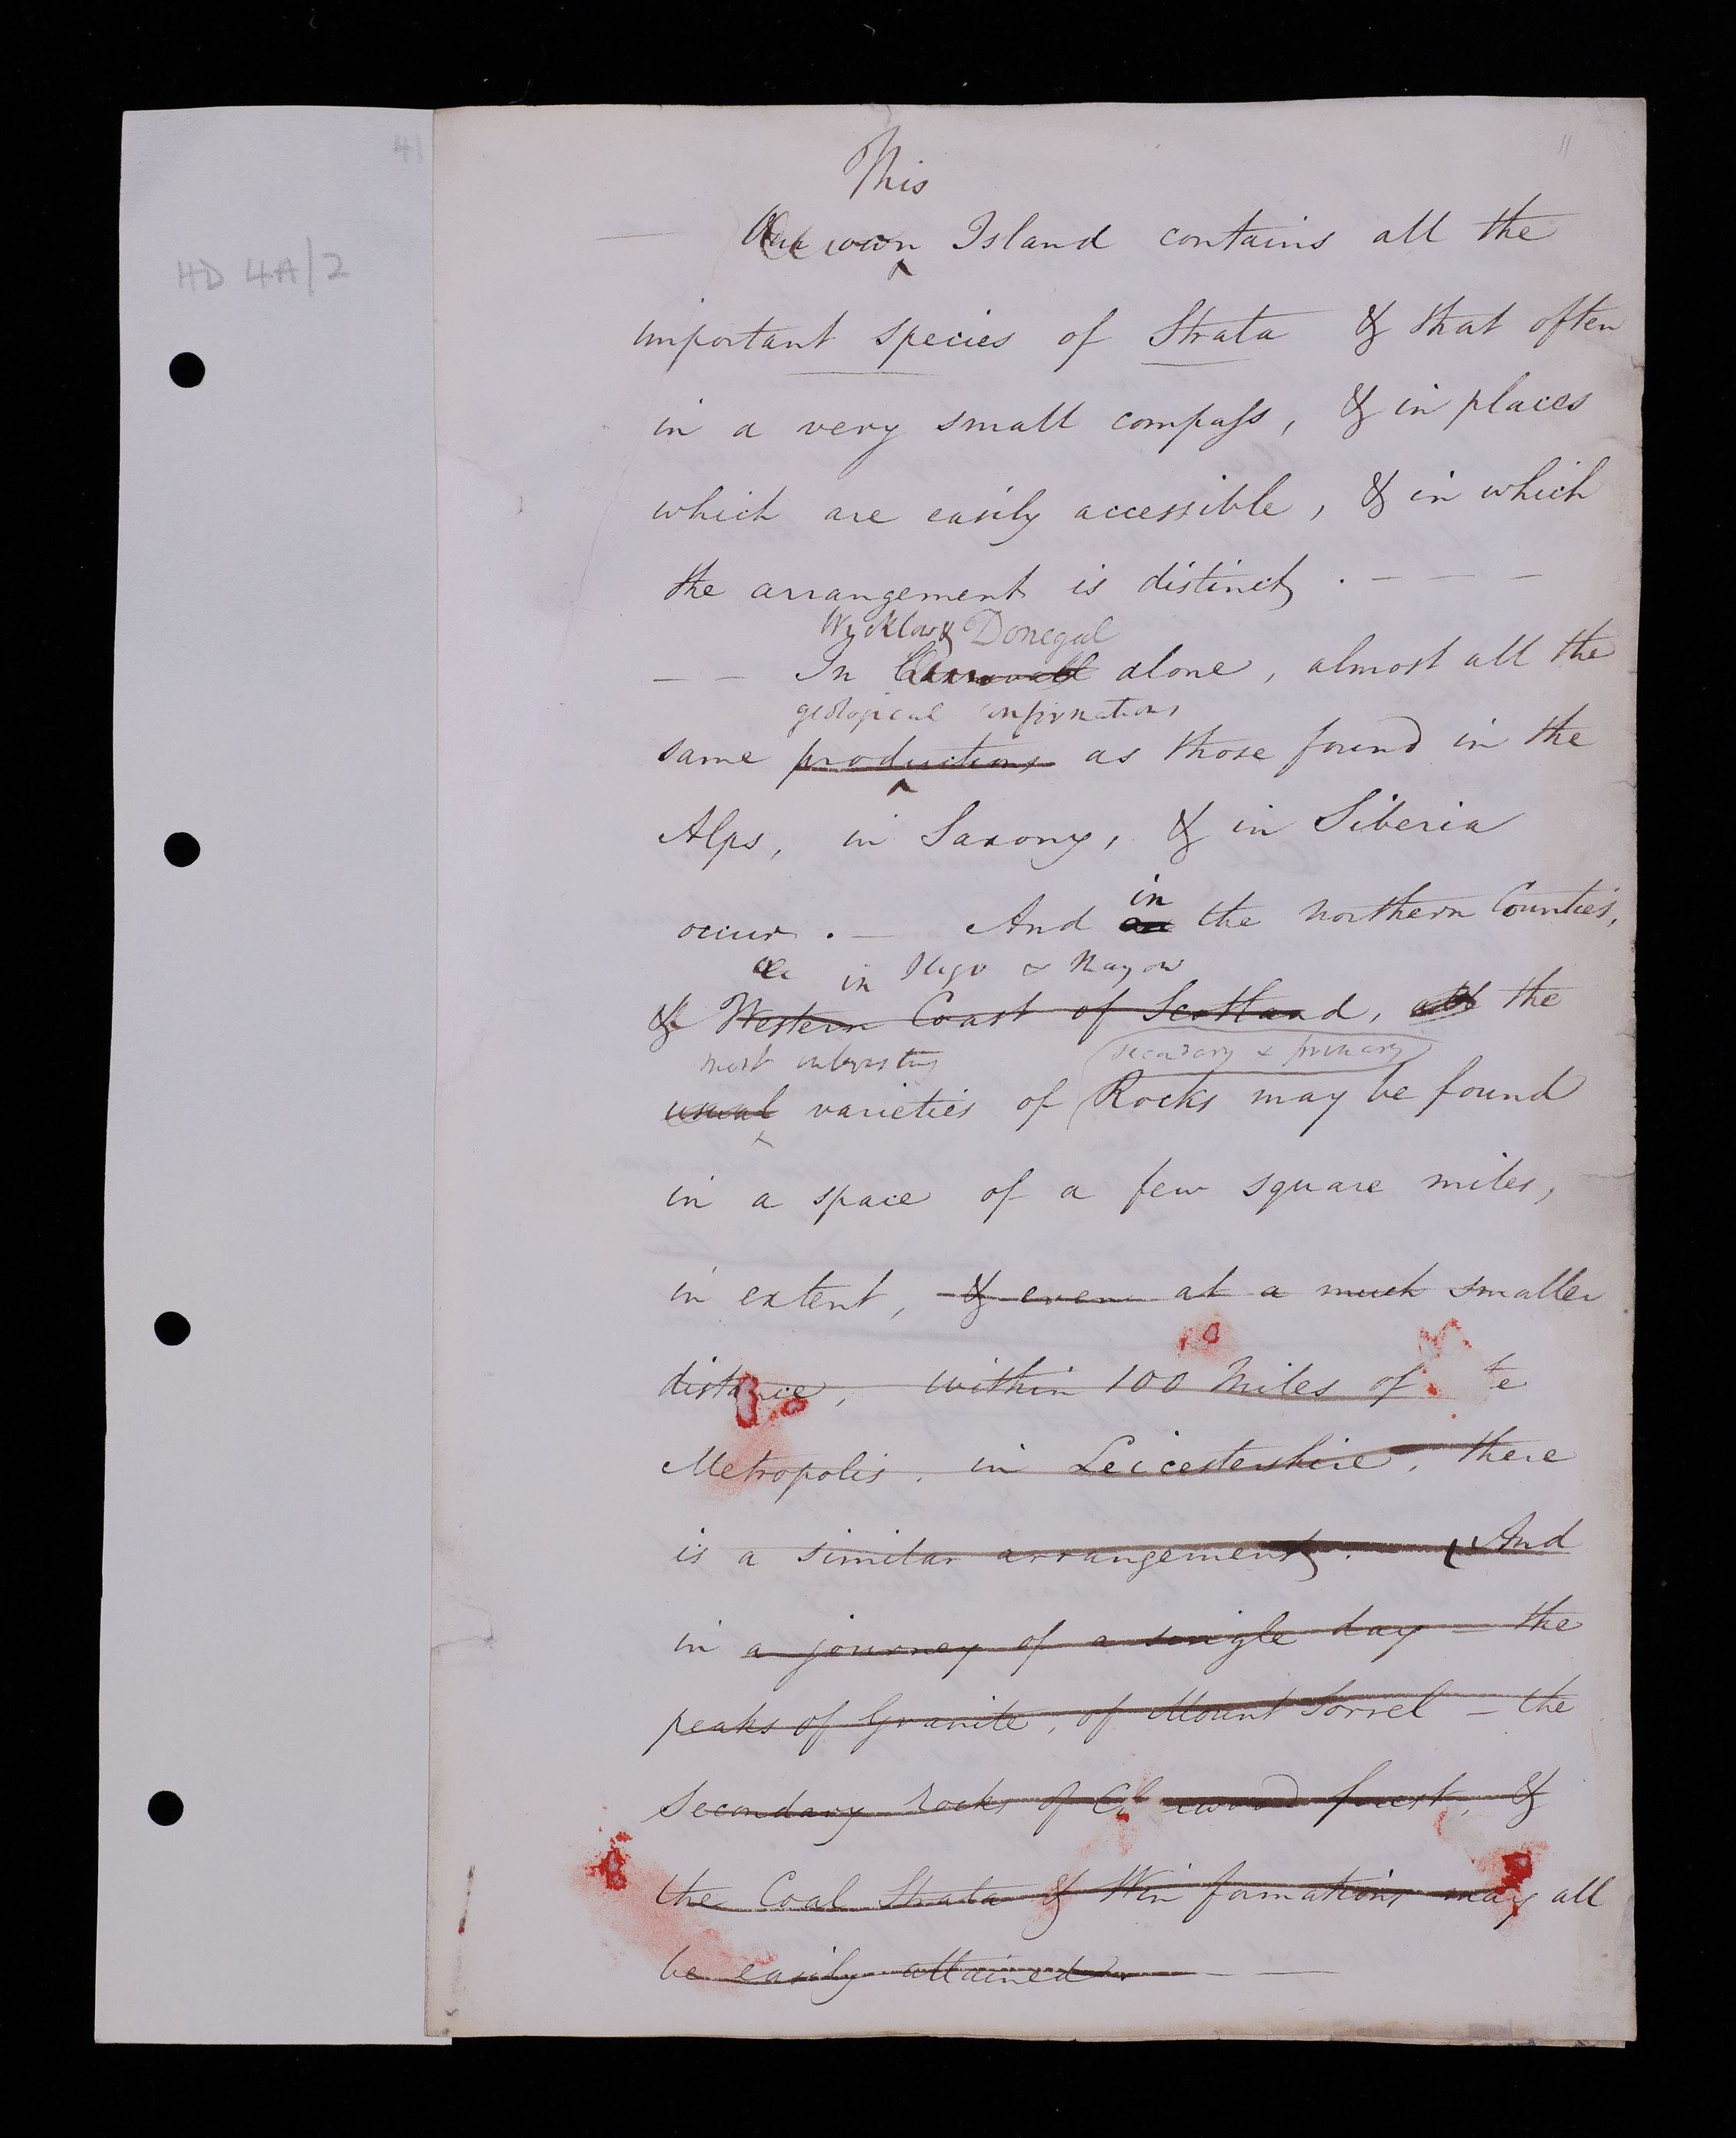 41
11
HD 4A/2
This
— Our own Island contains all the
important species of Strata & that often
in a very small compass, & in places
which are easily accessible, & in which
the arrangement is distinct. — — —
Wycklow & Donegal
— — In Cornwall alone, almost all the
geological conformations
same productions as those found in the
Alps, in Saxony, & in Siberia
in
occur. — And on the northern Counties,
in Sligo & Mayow
& Western Coast of Scotland, all the
most interesting secondary & primary
usual varieties of Rocks may be found
in a space of a few square miles,
in extent, & even at a much smaller
distance, within 100 Miles of te
Metropolis. in Leicestershire, there
is a similar arrangement. — And
in a journey of a single day — the
peaks of Granite, of Mount Sorrel — the
Secondary rocks of forest, &
the Coal Strata & Win formations may all
be easily attained. — —